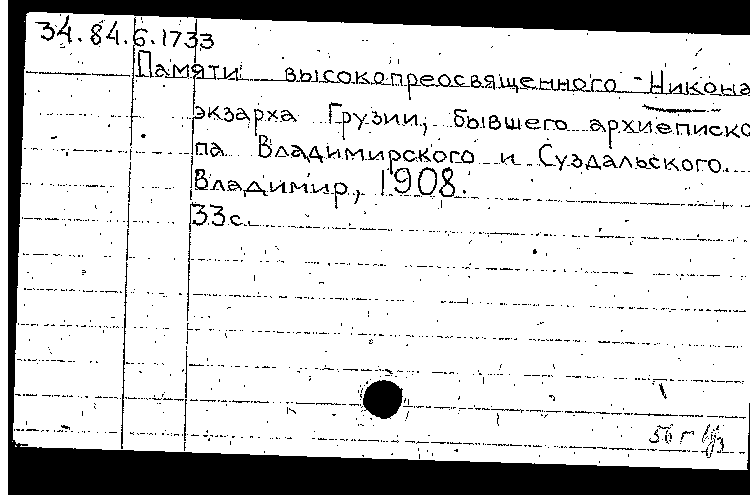 34.84.6.1733
Памяти высокопреосвященного Никона
экзарха Грузии, бывшего архиеписко
па Владимирского и Суздальского.
Владимир, 1908.
33с.